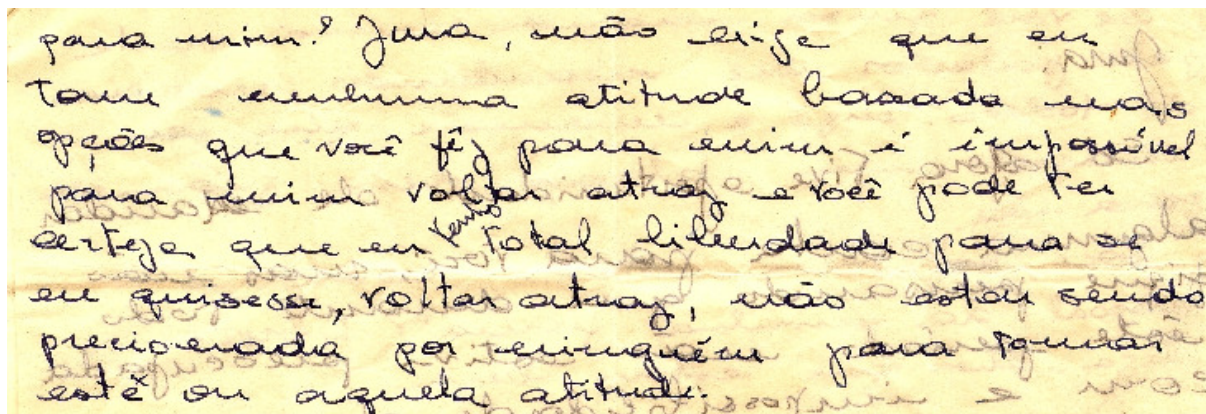 para mim? Jura, não exige que eu
tome nenhuma atitude baseada nas
opções que você fêz para mim é impossível
para mim voltar atraz e você pode ter
certeza que eu tenho total liberdade para se
eu quisesse, voltar atraz, não estou sendo
precionada por ninguém para tomar
este ou aquela atitude.